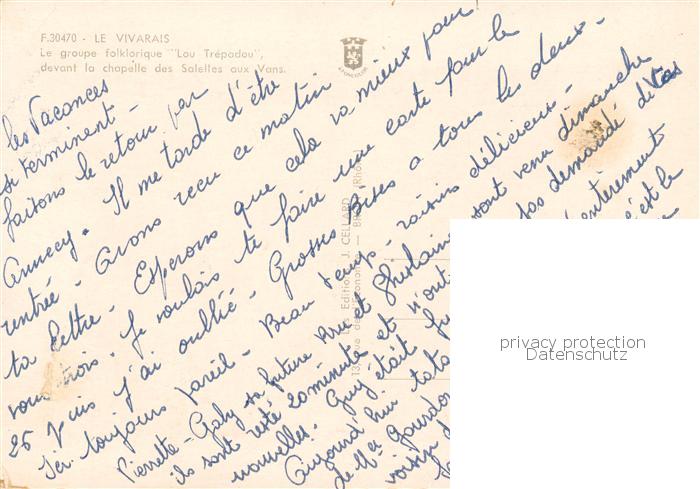 F.30470 - LE VIVARAIS
Le groupe folklorique "Lou Trépadou",
devant la chapelle des Salelles aux Vans.
les Vacances
se terminent -
faisons le retour par
Annecy. Il me tarde d'être
rentrée - avons reçu ce matin
ta lettre - Esperons que cela va mieux pour
vous trois. Je voulais te faire une carte pour le
25 Juin J'ai oublié - Grosses Bises a tous les deux -
Ici toujours pareil - Beau temps - raisins délicieux -
Pierrette - Gaby sa future Bru et Ghislaine sont venu dimanche
ils sont resté 20 minute et n'ont pas demandé de tes
nouvelles. Guy était
Aujourd'hui enterrement
de Mer Gourdon c'est le
voisin
Les Editions J. CELLARD
privacy protection
Datenschutz